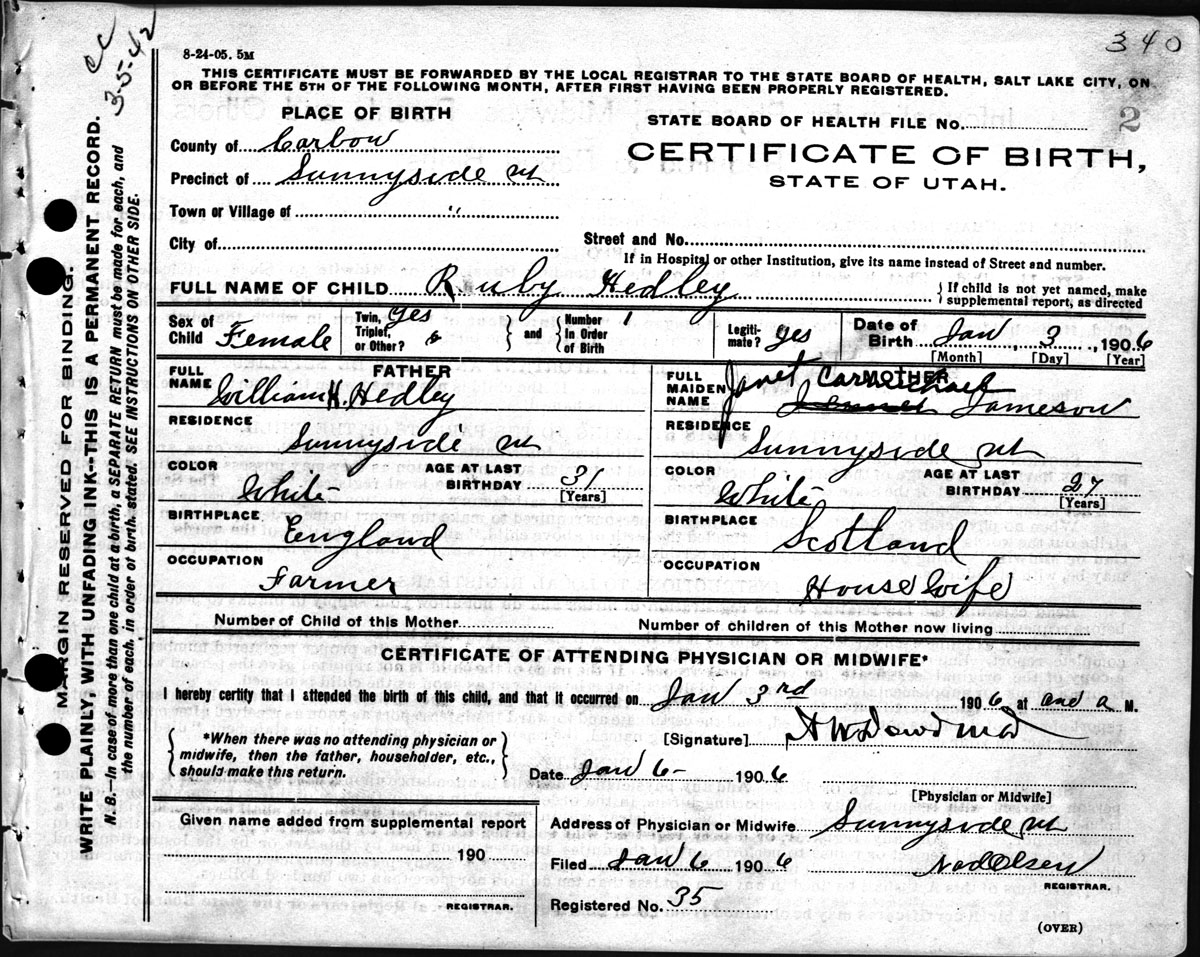 cc
3-5-42
340
8-24-05. 5M
THIS CERTIFICATE MUST BE FORWARDED BY THE LOCAL REGISTRAR TO THE STATE BOARD OF HEALTH, SALT LAKE CITY, ON
OR BEFORE THE 5TH OF THE FOLLOWING MONTH, AFTER FIRST HAVING BEEN PROPERLY REGISTERED.
PLACE OF BIRTH
STATE BOARD OF HEALTH FILE No.
2
County of Carbon
CERTIFICATE OF BIRTH,
STATE OF UTAH.
Precinct of Sunnyside Ut
Town or Village of "
City of
Street and No.
If in Hospital or other Institution, give its name instead of Street and number.
FULL NAME OF CHILD Ruby Hedley
{ If child is not yet named, make
supplemental report, as directed
Sex of Child Female
Twin, Triplet, or Other? yes
and
Number in Order of Birth 1
Legiti-mate? yes
Date of Birth Jan, 3, 1906
[Month] [Day] [Year]
FATHER
FULL NAME William H. Hedley
RESIDENCE Sunnyside Ut
COLOR White
AGE AT LAST BIRTHDAY 31
[Years]
BIRTHPLACE England
OCCUPATION Farmer
MOTHER
FULL MAIDEN NAME Janet Carmichael Jameson
RESIDENCE Sunnyside Ut
COLOR White
AGE AT LAST BIRTHDAY 27
[Years]
BIRTHPLACE Scotland
OCCUPATION House Wife
Number of Child of this Mother
Number of children of this Mother now living
CERTIFICATE OF ATTENDING PHYSICIAN OR MIDWIFE*
I hereby certify that I attended the birth of this child, and that it occurred on Jan 3rd 1906 at one a M.
{ *When there was no attending physician or
midwife, then the father, householder, etc.,
should make this return. }
[Signature] A W Dowd md
Date Jan 6- 1906
[Physician or Midwife]
Given name added from supplemental report
190
REGISTRAR.
Address of Physician or Midwife Sunnyside Ut
Filed Jan 6 1906
Olsen
REGISTRAR.
Registered No. 35
(OVER)
MARGIN RESERVED FOR BINDING.
WRITE PLAINLY, WITH UNFADING INK--THIS IS A PERMANENT RECORD.
N. B.—In case of more than one child at a birth, a SEPARATE RETURN must be made for each, and
the number of each, in order of birth, stated. SEE INSTRUCTIONS ON OTHER SIDE.